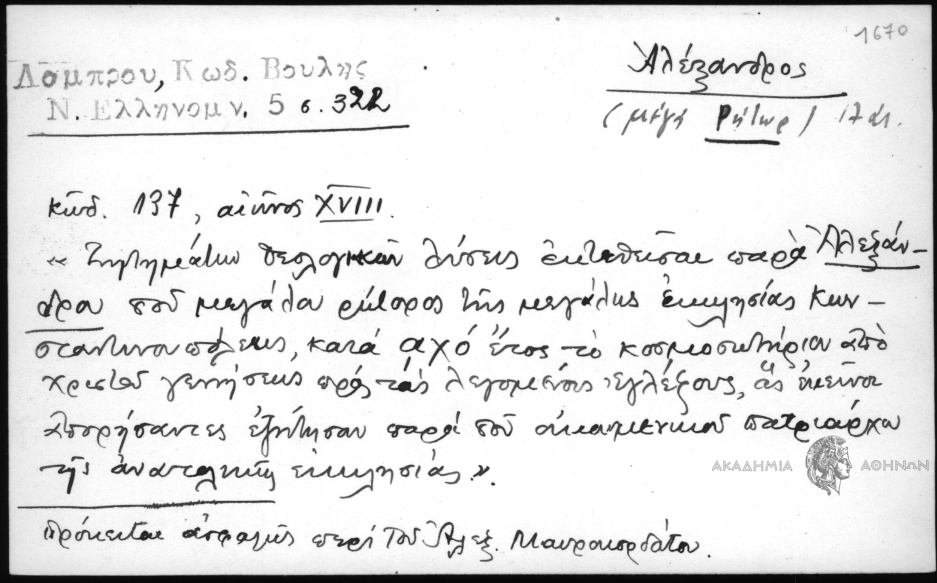 1670
Λάμπρου, Κωδ. Βουλης
Ν. Ελληνομν. 5 σ. 322
Ἀλέξανδρος
(μέγας Ρήτωρ) 17 αι.
κῶδ. 137, αἰῶνος XVIII.
« Ζητημάτων θεολογικῶν λύσεις ἐκτεθεῖσαι παρὰ Ἀλεξάν-
δρου τοῦ μεγάλου ῥήτορος τῆς μεγάλης ἐκκλησίας Κων-
σταντινουπόλεως, κατὰ αχό ἔτος τὸ κοσμοσωτήριον ἀπὸ
χριστοῦ γεννήσεως πρὸς τὰς λεγομένους ἐγλέζους, ἃς ἐκεῖνοι
ἀπορήσαντες ἐζήτησαν παρὰ τοῦ οἰκουμενικοῦ πατριάρχου
τῆς ἀνατολικῆς ἐκκλησίας ».
Πρόκειται ἀσφαλῶς περὶ τοῦ Ἀλεξ. Μαυροκορδάτου.
ΑΚΑΔΗΜΙΑ ΑΘΗΝΩΝ